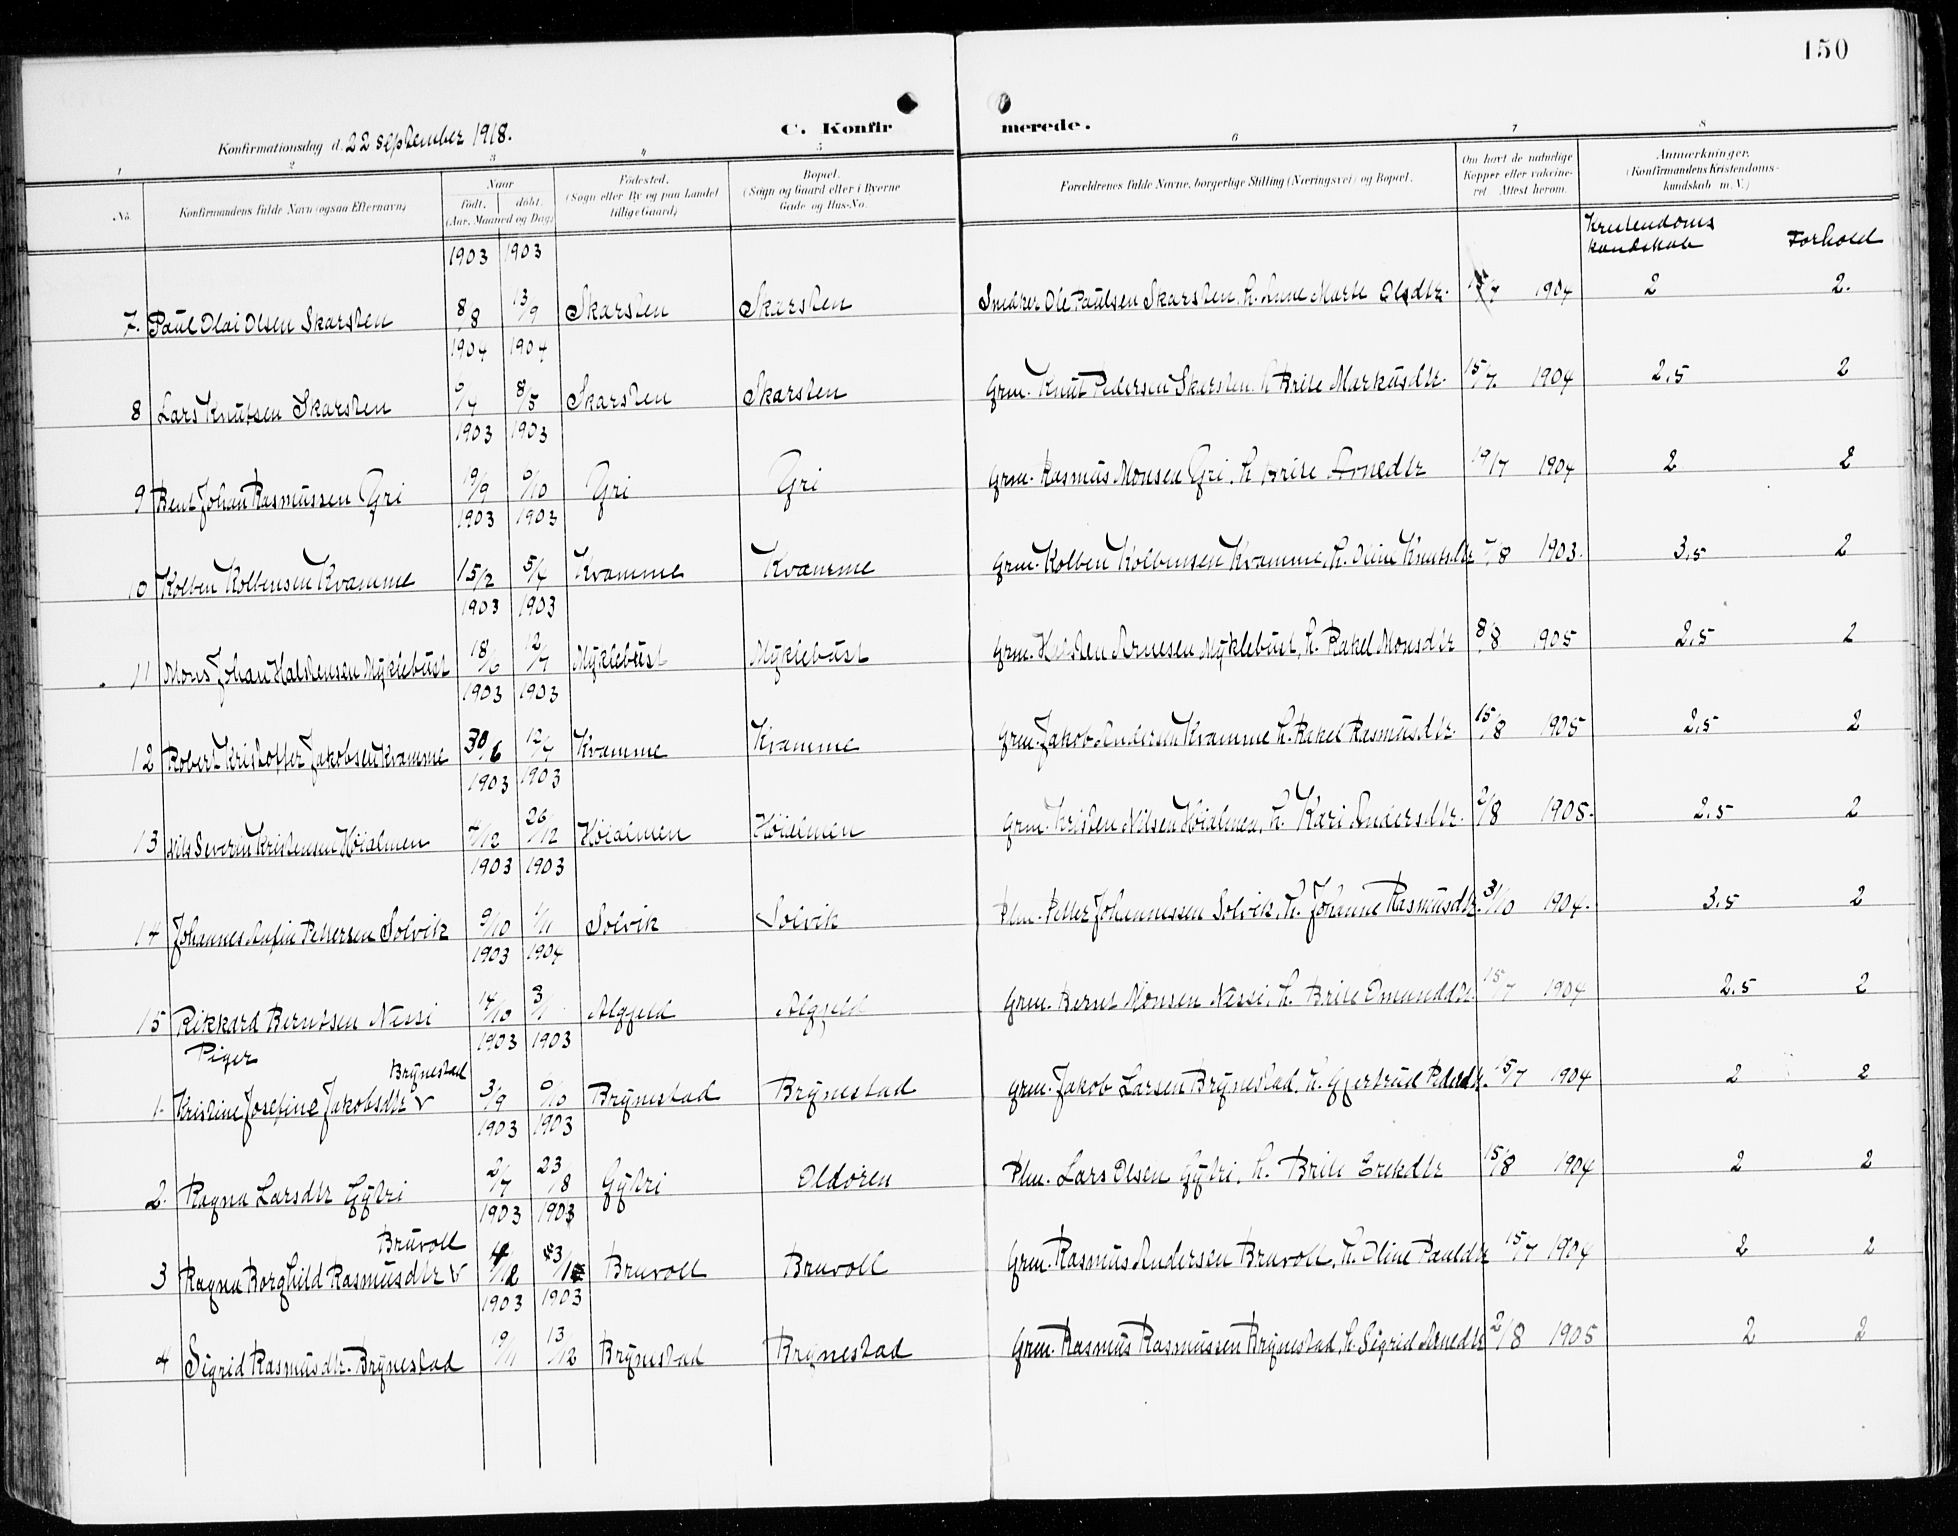 150
C. Konfirmerede.
Konfirmationsdag d. 22 september 1918.
1 2 3 4 5 6 7 8
No. Konfirmandens fulde Navn (ogsaa Efternavn) Naar født. døbt. (Aar, Maaned og Dag) Fødested. (Sogn eller By og paa Landet tillige Gaard) Bopæl. (Sogn og Gaard eller i Byerne Gade og Hus-No. Forældrenes fulde Navne, borgerlige Stilling (Næringsvei) og Bopæl. Om havt de naturlige Kopper eller vakcineret. Attest herom. Anmærkninger. (Konfirmandens Kristendomskundskab m. V.)
Kristendoms kundskab Forhold
1903 1903
7. Paul Olai Olsen Skarsten 8/8 13/9 Skarsten Skarsten Ole Paulsen Skarsten, h. Anne Marte Olsdtr. 1904 2 2.
1904 1904
8 Lars Knutsen Skarsten 8/5 Skarsten Skarsten Grm. Knut Pedersen Skarsten. h Brite Markusdtr. 15/7. 1904 2,5 2
1903 1903
9 Bent Johan Rasmussen Gri 19/9 Gri Gri Grm. Rasmus Monsen Gri, h Brite Arnedtr 19/7 1904 2 2
1903 1903
10 Kolben Kolbensen Kvamme 15/2 5/4 Kvamme Kvamme Grm. Kolben Kolbensen Kvamme, h. Oline Knutsdtr 7/8 1903. 3,5 2
1903 1903
11 Mons Johan Halstensen Myklebust 18/6 12/7 Myklebust Myklebust Grm. Halsten Arnesen Myklebust, h. Rakel Monsdtr 8/8 1905 2,5 2
1903 1903
12 Robert Kristoffer Jakobsen Kvamme 30/6 12/7 Kvamme Kvamme Grm. Jakob Andersen Kvamme h. Rakel Rasmusdtr. 15/8 1905 2,5 2
1903 1903
13 Nils Severin Kristensen Höialmen 4/12 26/12 Höialmen Höialmen Grm. Kristen Nilsen Höialmen, h. Kari Andersdtr. 2/8 1905. 2,5 2
1903 1903
14 Johannes Anfin Pettersen Solvik 9/10 1/11 Solvik Solvik Plm. Petter Johannessen Solvik, h. Johanne Rasmusdtr. 31/10 1904. 3,5 2
1903 1904
15 Rikkard Berntsen Nessi 14/10 3/1 Algjeld Algjeld Grm. Bernt Monsen Nessi, h. Brite Emunddtr. 15/7 1904 2,5 2
Piger
1903 1903
Brynestad
1. Kristine Josefine Jakobsdtr v 3/9 Brynestad Brynestad Grm. Jakob Larsen Brynestad, h. Gjertrud Pedersdtr. 15/7 1904 2 2
1903 1903
2. Ragna Larsdtr Gytri 2/7 23/8 Gytri Oldören Plm. Lars Olsen Gytri, h. Brite Erekdtr 15/8 1904 2 2
1903 1903
Bruvoll
3 Ragna Borghild Rasmusdtr v Bruvoll Bruvoll Grm. Rasmus Andersen Bruvoll, h. Oline Pauldtr 15/7 1904 2 2
1903 1903
4 Sigrid Rasmusdtr. Brynestad 19/11 13/12 Brynestad Brynestad Grm. Rasmus Rasmussen Brynestad, h. Sigrid Arnedtr 2/8 1905 2 2